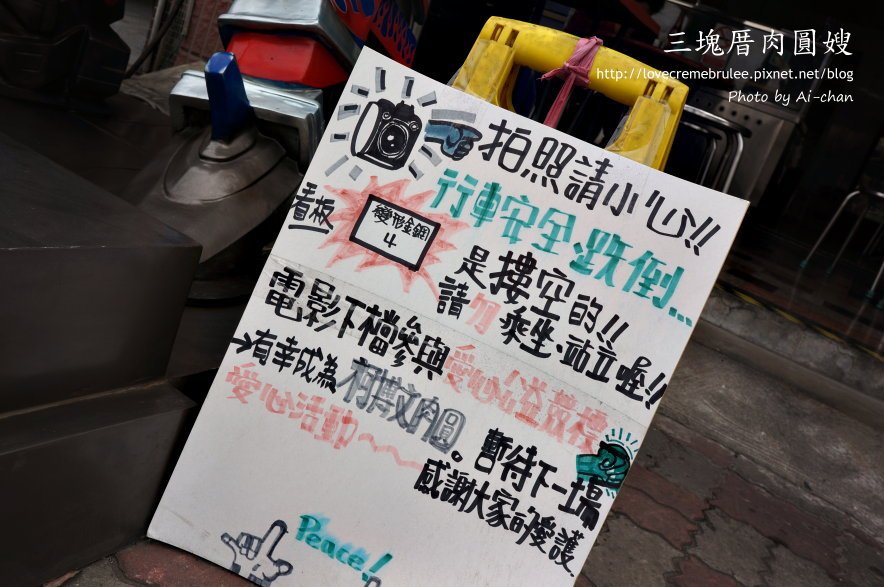 三塊厝肉圓嫂
http://lovecremebrulee.pixnet.net/blog
Photo by Ai-chan
拍照請小心!!
行車安全、跌倒...
看板
變形金鋼
4
是摟空的!!
請勿乘坐、站立喔!!
電影下檔參與愛心公益義賣
→有幸成為柯博文肉圓。暫待下一場
愛心活動~~
感謝大家的愛護
Peace!